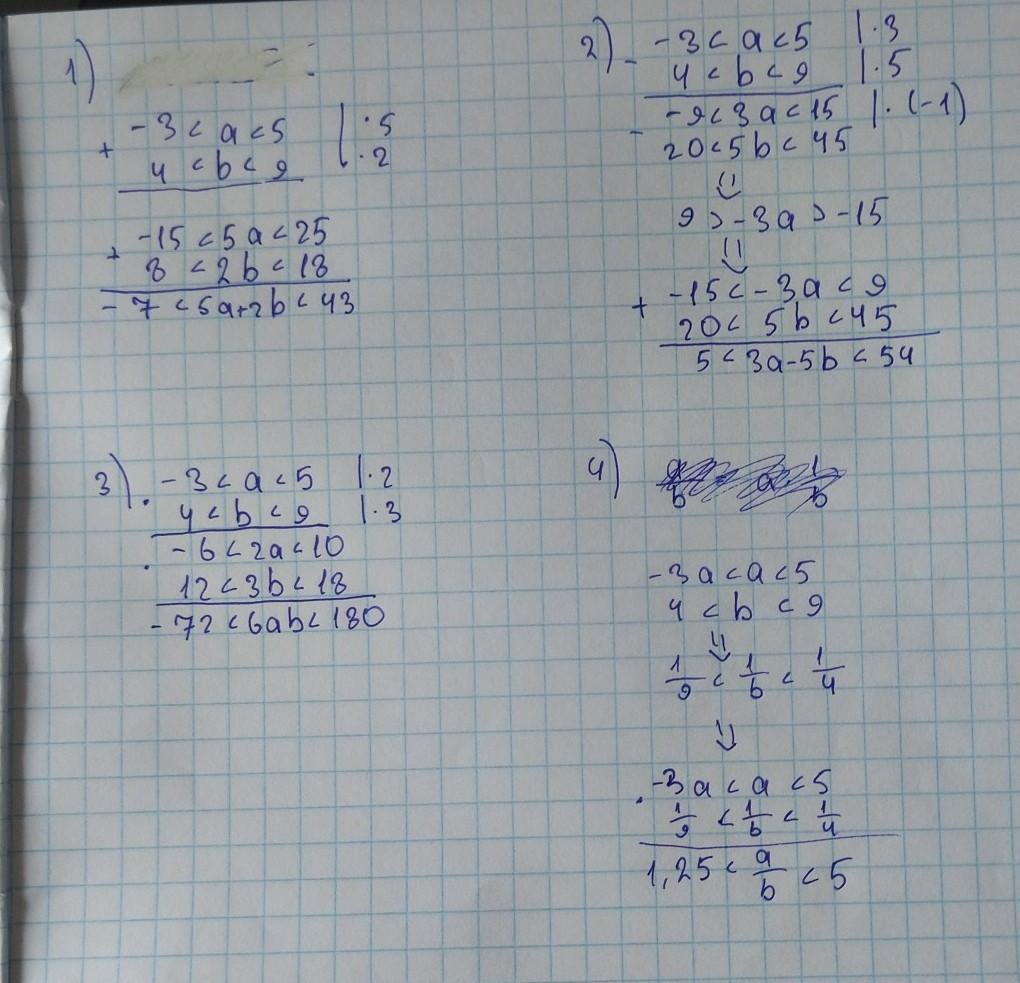 1)
-3 < a < 5 | · 5
+
4 < b < 9 | · 2
-15 < 5a < 25
+
8 < 2b < 18
-7 < 5a+2b < 43
2)
-3 < a < 5 | · 3
-
4 < b < 9 | · 5
-9 < 3a < 15 | · (-1)
-
20 < 5b < 45
⇓
9 > -3a > -15
⇓
-15 < -3a < 9
+
20 < 5b < 45
5 < 3a-5b < 54
3)
-3 < a < 5 | · 2
·
4 < b < 9 | · 3
-6 < 2a < 10
·
12 < 3b < 18
-72 < 6ab < 180
4)
-3a < a < 5
4 < b < 9
⇓
1/9 < 1/b < 1/4
⇓
-3a < a < 5
·
1/9 < 1/b < 1/4
1,25 < a/b < 5